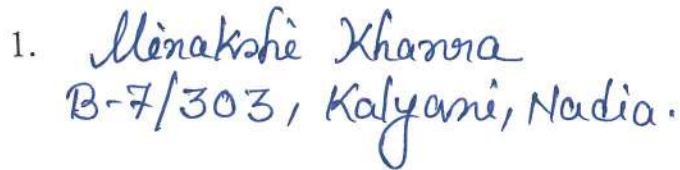 1. Minakshi Khanra
B-7/303, Kalyani, Nadia.